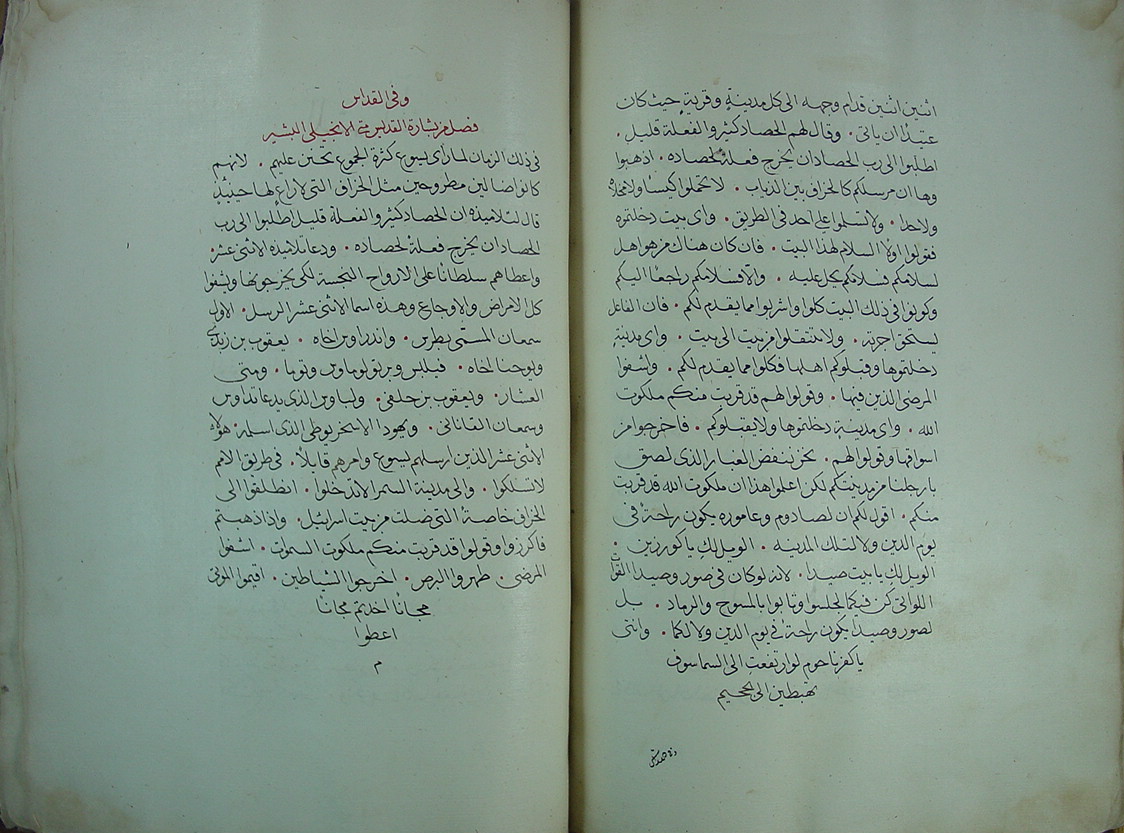 اثنين اثنين قدام وجهه الى كل مدينة وقرية حيث كان
عتيدًا ان ياتى. وقال لهم الحصاد كثير والفعلة قليل.
اطلبوا الى رب الحصاد ان يخرج فعلة لحصاده. اذهبوا
وها ان مرسلكم كالخراف بين الذياب. لا تحملوا كيسًا ولا مخلاه
ولا حذا. ولا تسلموا على احد فى الطريق. واى بيت دخلتموه
فقولوا اولًا السلام لهذا البيت. فان كان هناك من هو اهل
لسلامكم فسلامكم يحل عليه. والا فسلامكم راجعًا اليكم
وكونوا فى ذلك البيت كلوا واشربوا مما يقدم لكم. فان الفاعل
يستحق اجرته. ولا تنتقلوا من بيت الى بيت. واى مدينة
دخلتموها وقبلوكم اهلها فكلوا مما يقدم لكم. واشفوا
المرضى الذين فيها. وقولوا لهم قد قربت منكم ملكوت
الله. واى مدينة دخلتموها ولا يقبلوكم. فاخرجوا من
اسواقها وقولوا لهم. نحن ننفض الغبار الذى لصق
بارجلنا من مدينتكم لكن اعلموا هذا ان ملكوت الله قد قربت
منكم. اقول لكم ان لصادوم وعاموره يكون راحة فى
يوم الدين ولا لتلك المدينه. الويل لكِ يا كورزين.
الويل لكِ يا بيت صيدا. لانه لو كان فى صور وصيدا القوات
اللواتى كن فيكما لجلسوا وتابوا بالمسوح والرماد. بل
لصور وصيدا يكون راحة فى يوم الدين ولا لكما. وانتى
يا كفرناحوم لو ارتفعت الى السما سوف
تهبطين الى الجحيم
وفى القداس
فصل من بشارة القديس متى الانجيلى البشير
فى ذلك الزمان لما راى يسوع كثرة الجموع تحنن عليهم. لانهم
كانوا ضالين مطروحين مثل الخراف التى لا راع لها حينيذٍ
قال لتلاميذه ان الحصاد كثير والفعلة قليل اطلبوا الى رب
الحصاد ان يخرج فعلة لحصاده. ودعا تلاميذه الاثنى عشر.
واعطاهم سلطانًا على الارواح النجسة لكى يخرجوها ويشفوا
كل الامراض والاوجاع وهذه اسما الاثنى عشر الرسل. الاول
سمعان المسمى بطرس. واندراوس اخاه. يعقوب بن زبدى
ويوحنا اخاه. فيلبس وبرتولوماوس وتوما. ومتى
العشار. ويعقوب بن حلفى. ولباوس الذى يدعا تداوس
وسمعان القنانى. ويهودا الاسخريوطى الذى اسلمه. هولاء
الاثنى عشر الذين ارسلهم يسوع وامرهم قايلًا. فى طريق الامم
لا تسلكوا. والى مدينة السمرا لا تدخلوا. انطلقوا الى
الخراف خاصة التى ضلت من بيت اسرائيل. واذا ذهبتم
فاكرزوا وقولوا قد قربت منكم ملكوت السموات. اشفوا
المرضى. طهروا البرص. اخرجوا الشياطين. اقيموا الموتى
مجانًا اخذتم مجانًا
اعطوا
م